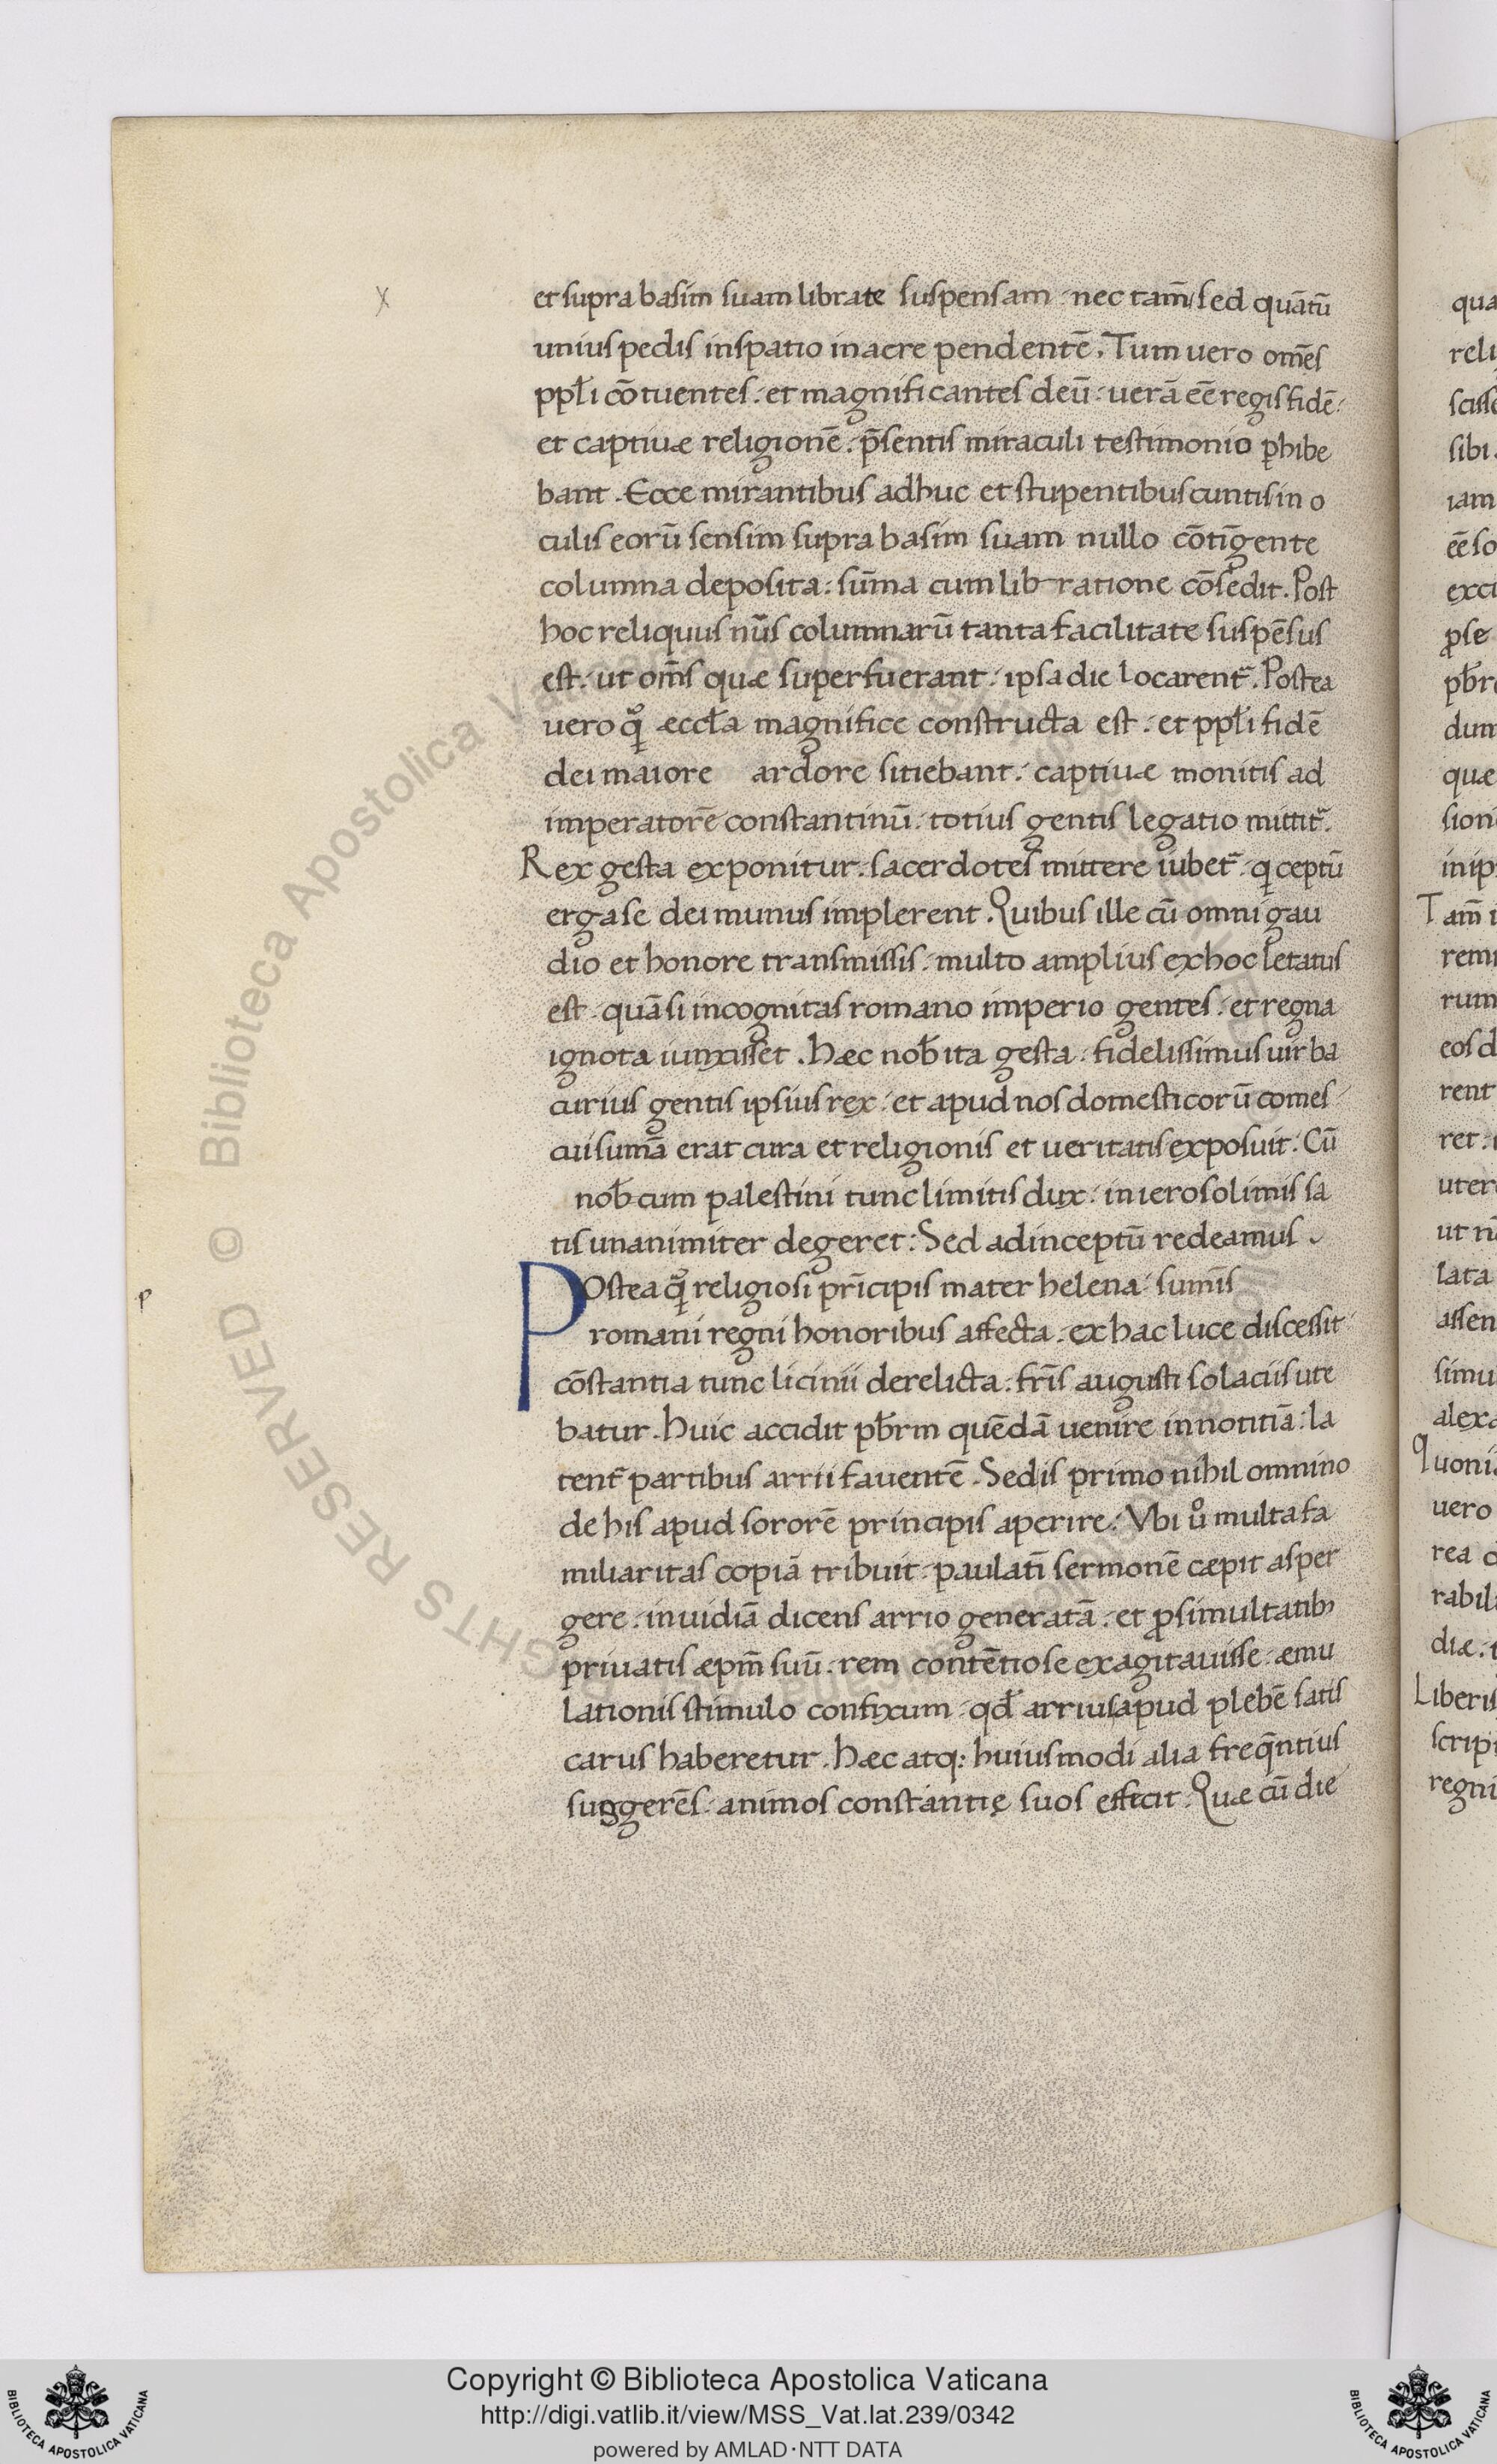 et supra basim suam librate suspensam · nec tam̅ / sed quātū
unius pedis inspatio inaere pendentē. Tum uero om̅es
ppl̅i cōtuentes · et magnificantes deū : uerā eē regis fidē :
et captiuæ religionē : p̄sentis miraculi testimonio ꝑhibe
bant. Ecce mirantibus adhuc et stupentibus cuntis in o
culis eorū sensim supra basim suam nullo cōtīgente
columna deposita : sum̄a cum lib ratione cōsedit. Post
hoc reliquus nūs columnarū tanta facilitate suspēsus
est : ut om̅s quæ superfuerant : ipsa die locarent᷑. Postea
uero qͦꝫ æccl̅a magnifice constructa est : et ppl̅i fidē
dei maiore ardore sitiebant : captiuæ monitis ad
imperatorē constantinū : totius gentis legatio mittit᷑.
Rex gesta exponitur : sacerdotes mittere iubet᷑ : q ceptū
erga se dei munus implerent. Quibus ille cū omni gau
dio et honore transmissis : multo amplius ex hoc letatus
est : quā si incognitas romano imperio gentes : et regna
ignota iunxisset. Hæc nob̅ ita gesta : fidelissimus uir ba
curius gentis ipsius rex : et apud nos domesticorū comes :
cui sum̅a erat cura et religionis et ueritatis exposuit : Cū
nob̅ cum palestini tunc limitis dux : in ierosolimis sa
tis unanimiter degeret : Sed ad inceptū redeamus.
p
POstea qͦꝫ religiosi prīcipis mater helena : sum̄is
romani regni honoribus affecta : ex hac luce discessit :
cōstantia tunc licinii derelicta : fr̅is augusti solaciis ute
batur. Huic accidit pb̅rm quēdā uenire in notitiā : la
tent᷑ partibus arrii fauentē. Sed is primo nihil omnino
de his apud sororē principis aperire : Vbi uͦ multa fa
miliaritas copiā tribuit : paulatī sermonē cæpit asper
gere : inuidiā dicens arrio generatā : et ꝓ simultatibꝫ
priuatis æpm̅ suū : rem contētiose exagitauisse : æmu
lationis stimulo confixum : qd̅ arrius apud plebē satis
carus haberetur. Hæc atqꝫ huiusmodi alia freq̄ntius
suggerēs : animos constantię suos effecit. Quæ cū die
Copyright © Biblioteca Apostolica Vaticana
http://digi.vatlib.it/view/MSS_Vat.lat.239/0342
powered by AMLAD·NTT DATA